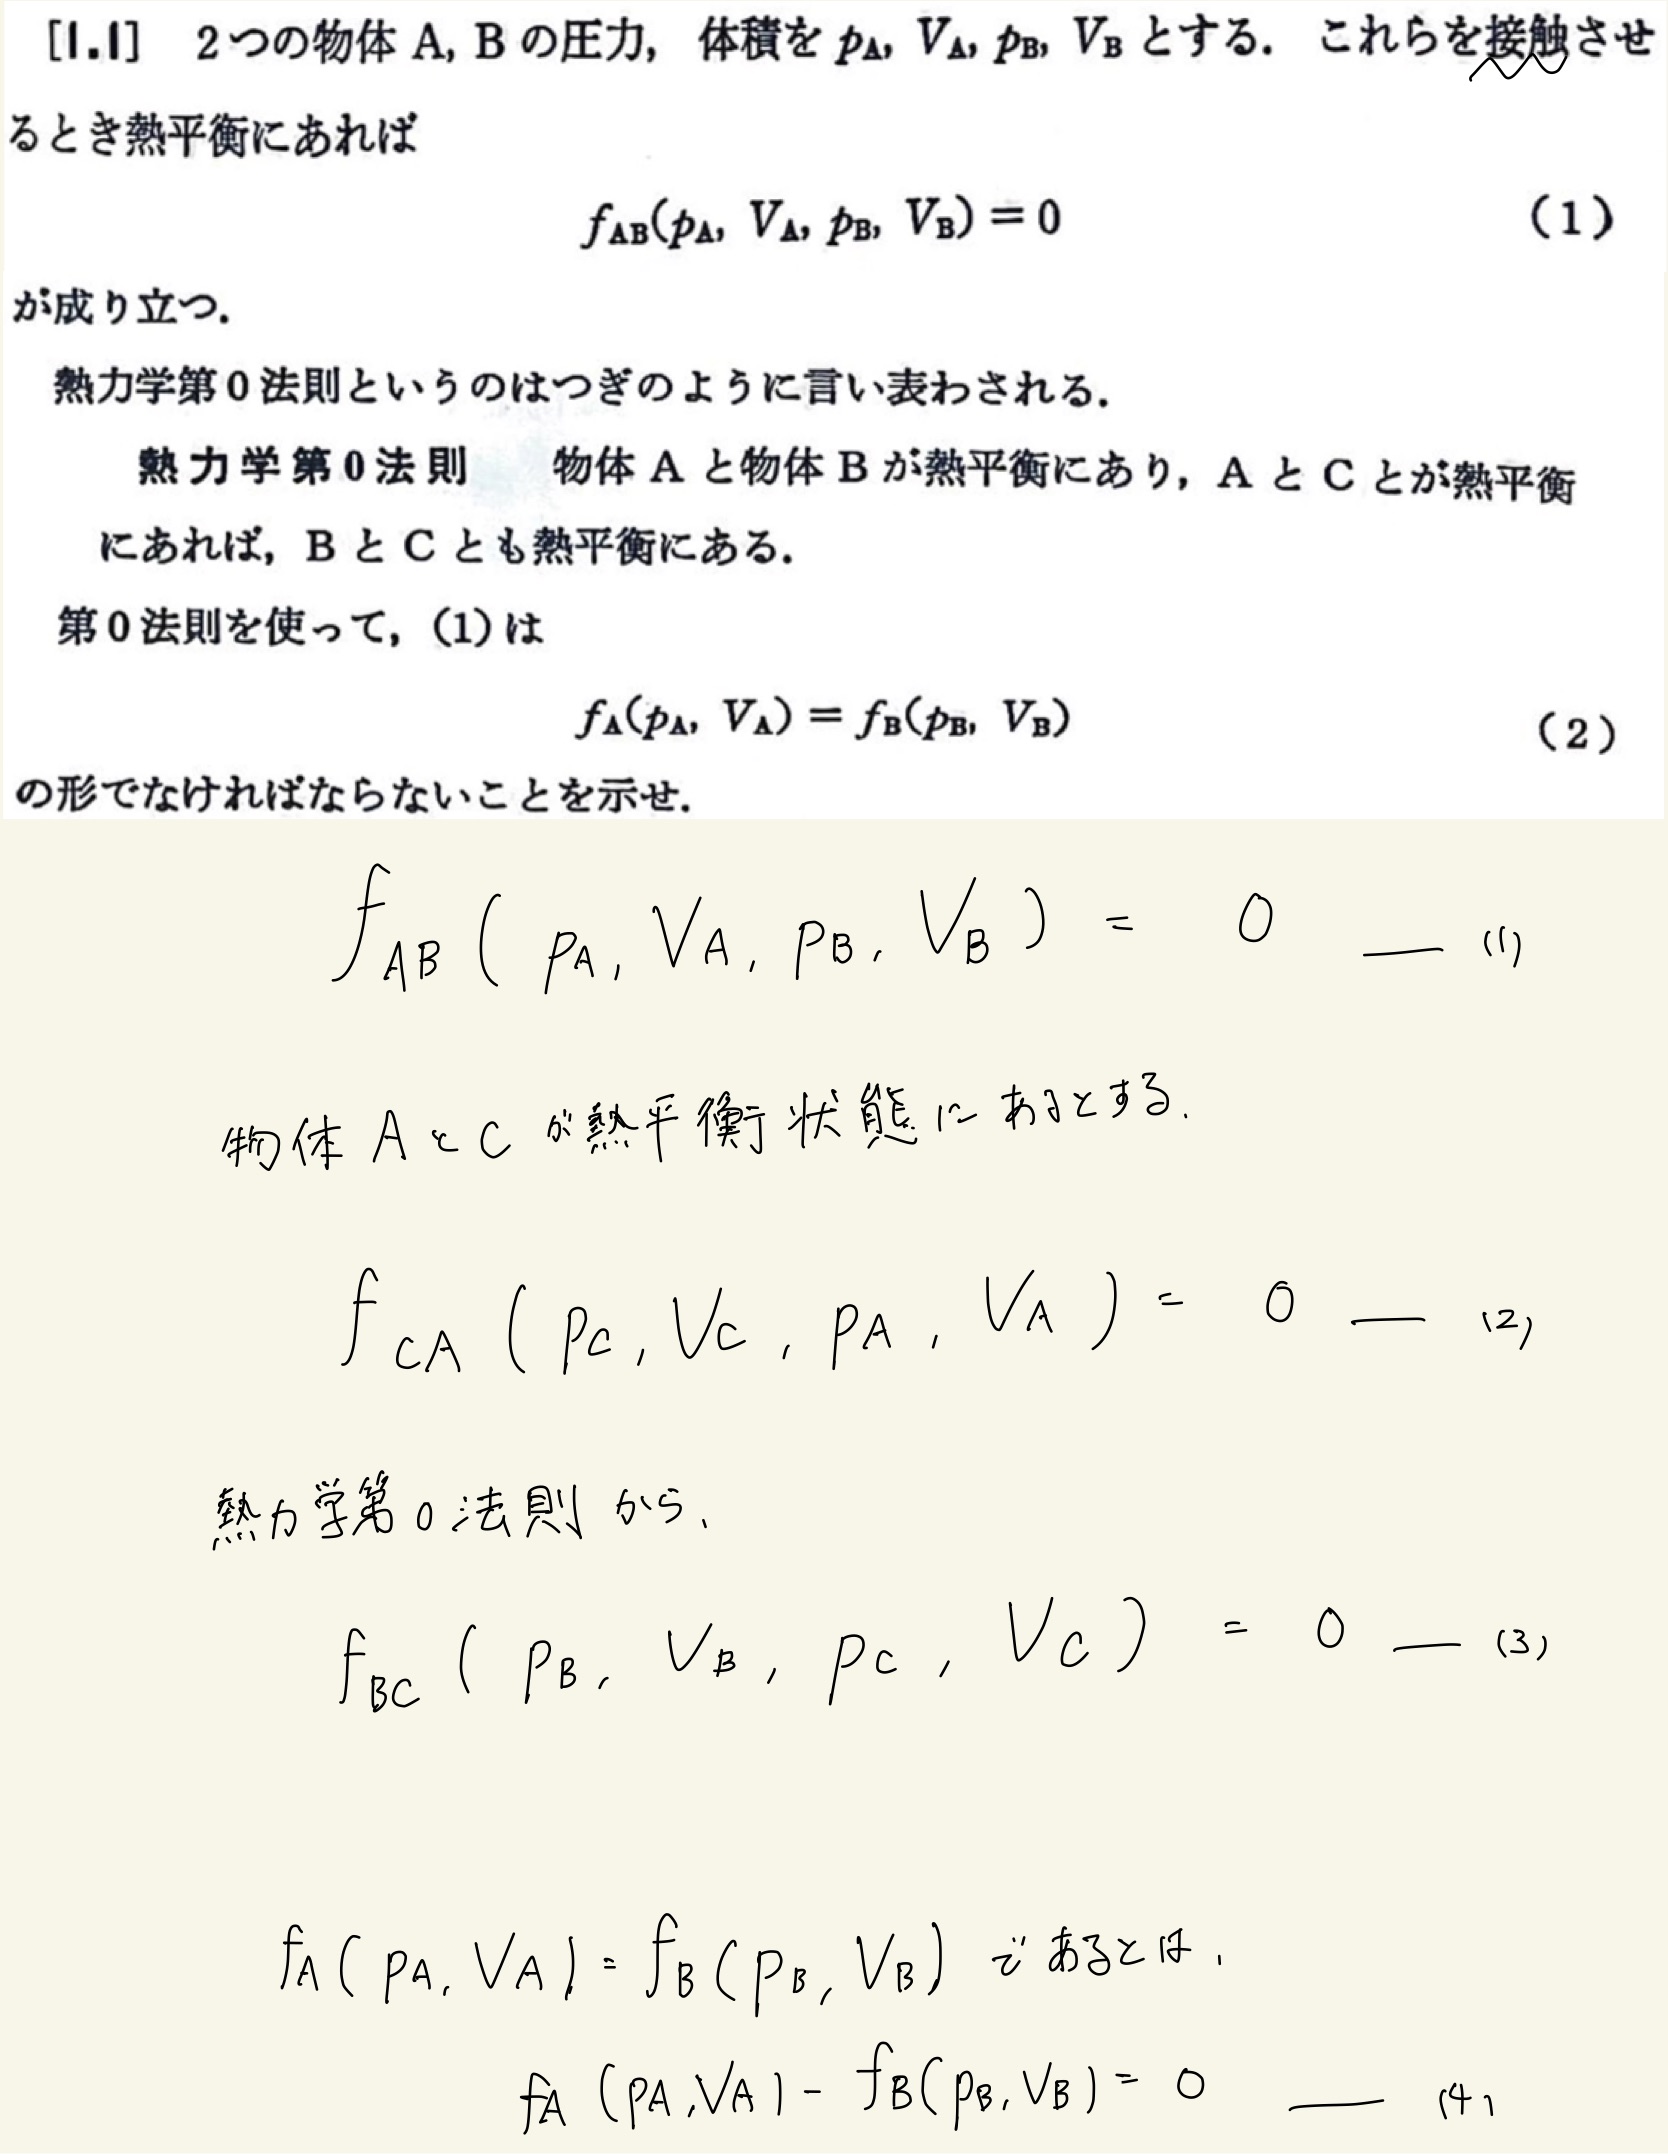 [1.1] 2つの物体 A, B の圧力, 体積を pA, VA, pB, VB とする. これらを接触させ
るとき熱平衡にあれば
fAB(pA, VA, pB, VB) = 0 (1)
が成り立つ.
熱力学第0法則というのはつぎのように言い表わされる.
熱力学第0法則 物体 A と物体 B が熱平衡にあり, A と C とが熱平衡
にあれば, B と C とも熱平衡にある.
第0法則を使って, (1)は
fA(pA, VA) = fB(pB, VB) (2)
の形でなければならないことを示せ.
fAB ( pA, VA, pB, VB ) = 0 — (1)
物体 AとC が熱平衡状態に あるとする.
fCA ( pC, VC, pA, VA ) = 0 — (2)
熱力学第0法則 から、
fBC ( pB, VB, pC, VC ) = 0 — (3)
fA ( pA, VA ) = fB ( pB, VB ) であるとは、
fA (pA, VA) - fB(pB, VB) = 0 — (4)